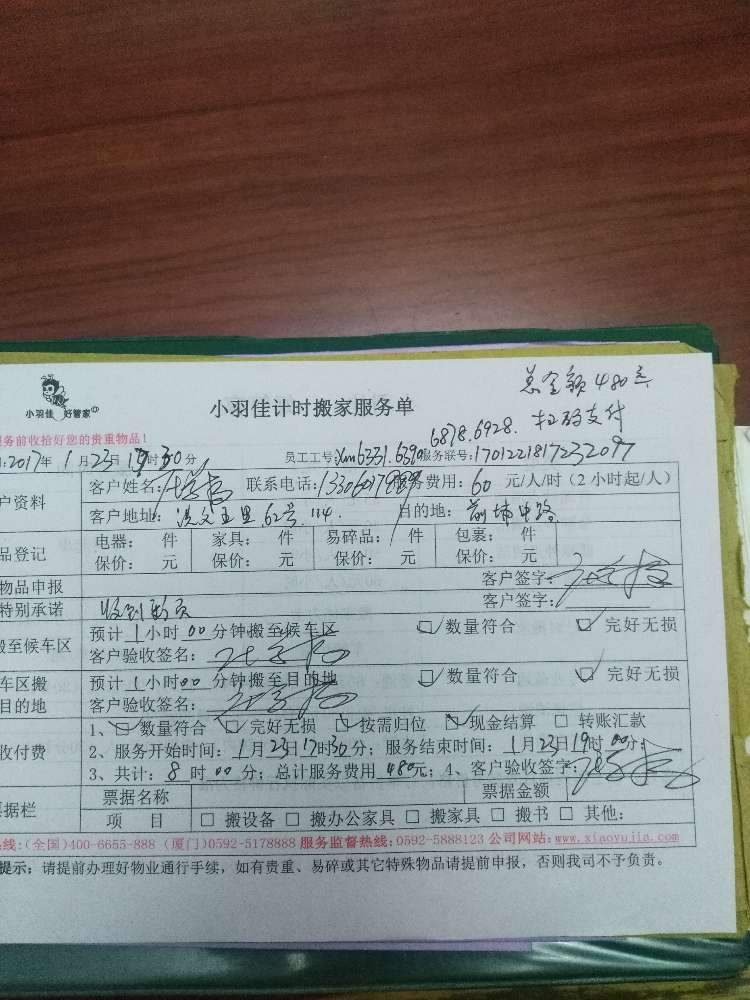 总金额480元
6878.6928. 扫码支付
小羽佳 好管家
小羽佳计时搬家服务单
务前收拾好您的贵重物品!
2017年1月23日 时30分 员工工号:xm6331.6390服务联号:170122181723209
户资料 客户姓名: 联系电话: 服务费用:60元/人/时(2小时起/人)
客户地址: 62号 114. 目的地:前埔中路
品登记 电器: 件 家具: 件 易碎品: 件 包裹: 件
保价: 元 保价: 元 保价: 元 保价: 元
物品申报 客户签字:
特别承诺 收到 客户签字:
搬至候车区 预计1小时00分钟搬至候车区 ☑数量符合 ☑完好无损
客户验收签名:
车区搬 预计1小时00分钟搬至目的地 ☑数量符合 ☑完好无损
目的地 客户验收签名:
收付费 1、☑数量符合 ☑完好无损 ☑按需归位 ☑现金结算 □转账汇款
2、服务开始时间:1月23日17时30分;服务结束时间:1月23日19时00分;
3、共计:8时00分;总计服务费用480元;4、客户验收签字:
票据栏 票据名称 票据金额
项 目 □搬设备 □搬办公家具 □搬家具 □搬书 □其他:
线:(全国)400-6655-888 (厦门)0592-5178888 服务监督热线:0592-5888123 公司网站:www.xiaoyujia.com
提示:请提前办理好物业通行手续,如有贵重、易碎或其它特殊物品请提前申报,否则我司不予负责。